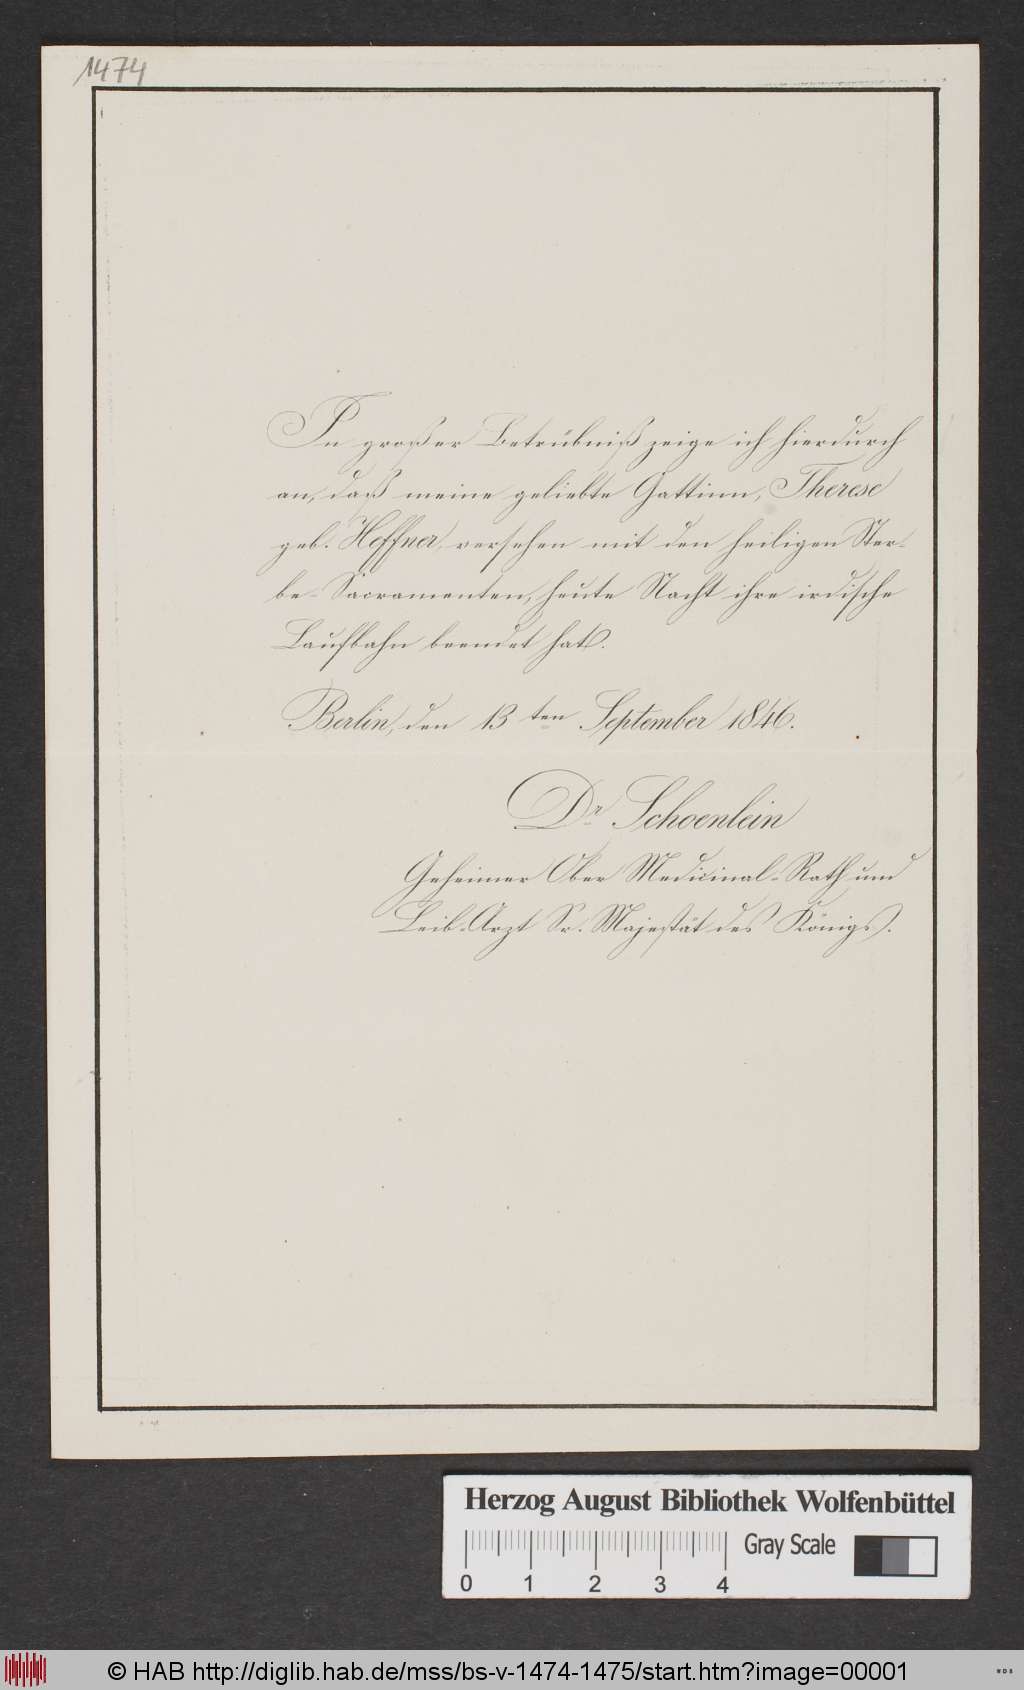 1474
In großer Betrübniß zeige ich hierdurch
an, daß meine geliebte Gattinn, Therese
geb. Heffner, versehen mit den heiligen Ster-
be-Sacramenten, heute Nacht ihre irdische
Laufbahn beendet hat.
Berlin, den 13ten September 1846.
Dr Schoenlein
Geheimer Ober Medicinal-Rath und
Leib-Arzt Sr. Majestät des Königs.
Herzog August Bibliothek Wolfenbüttel
Gray Scale
0 1 2 3 4
© HAB http://diglib.hab.de/mss/bs-v-1474-1475/start.htm?image=00001